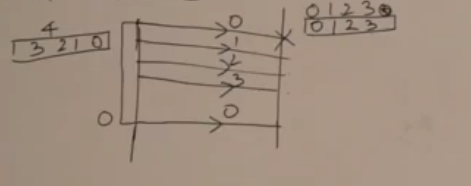 4
3 2 1 0
0 1 2 3 0
0 1 2 3
0
1
2
3
0
0